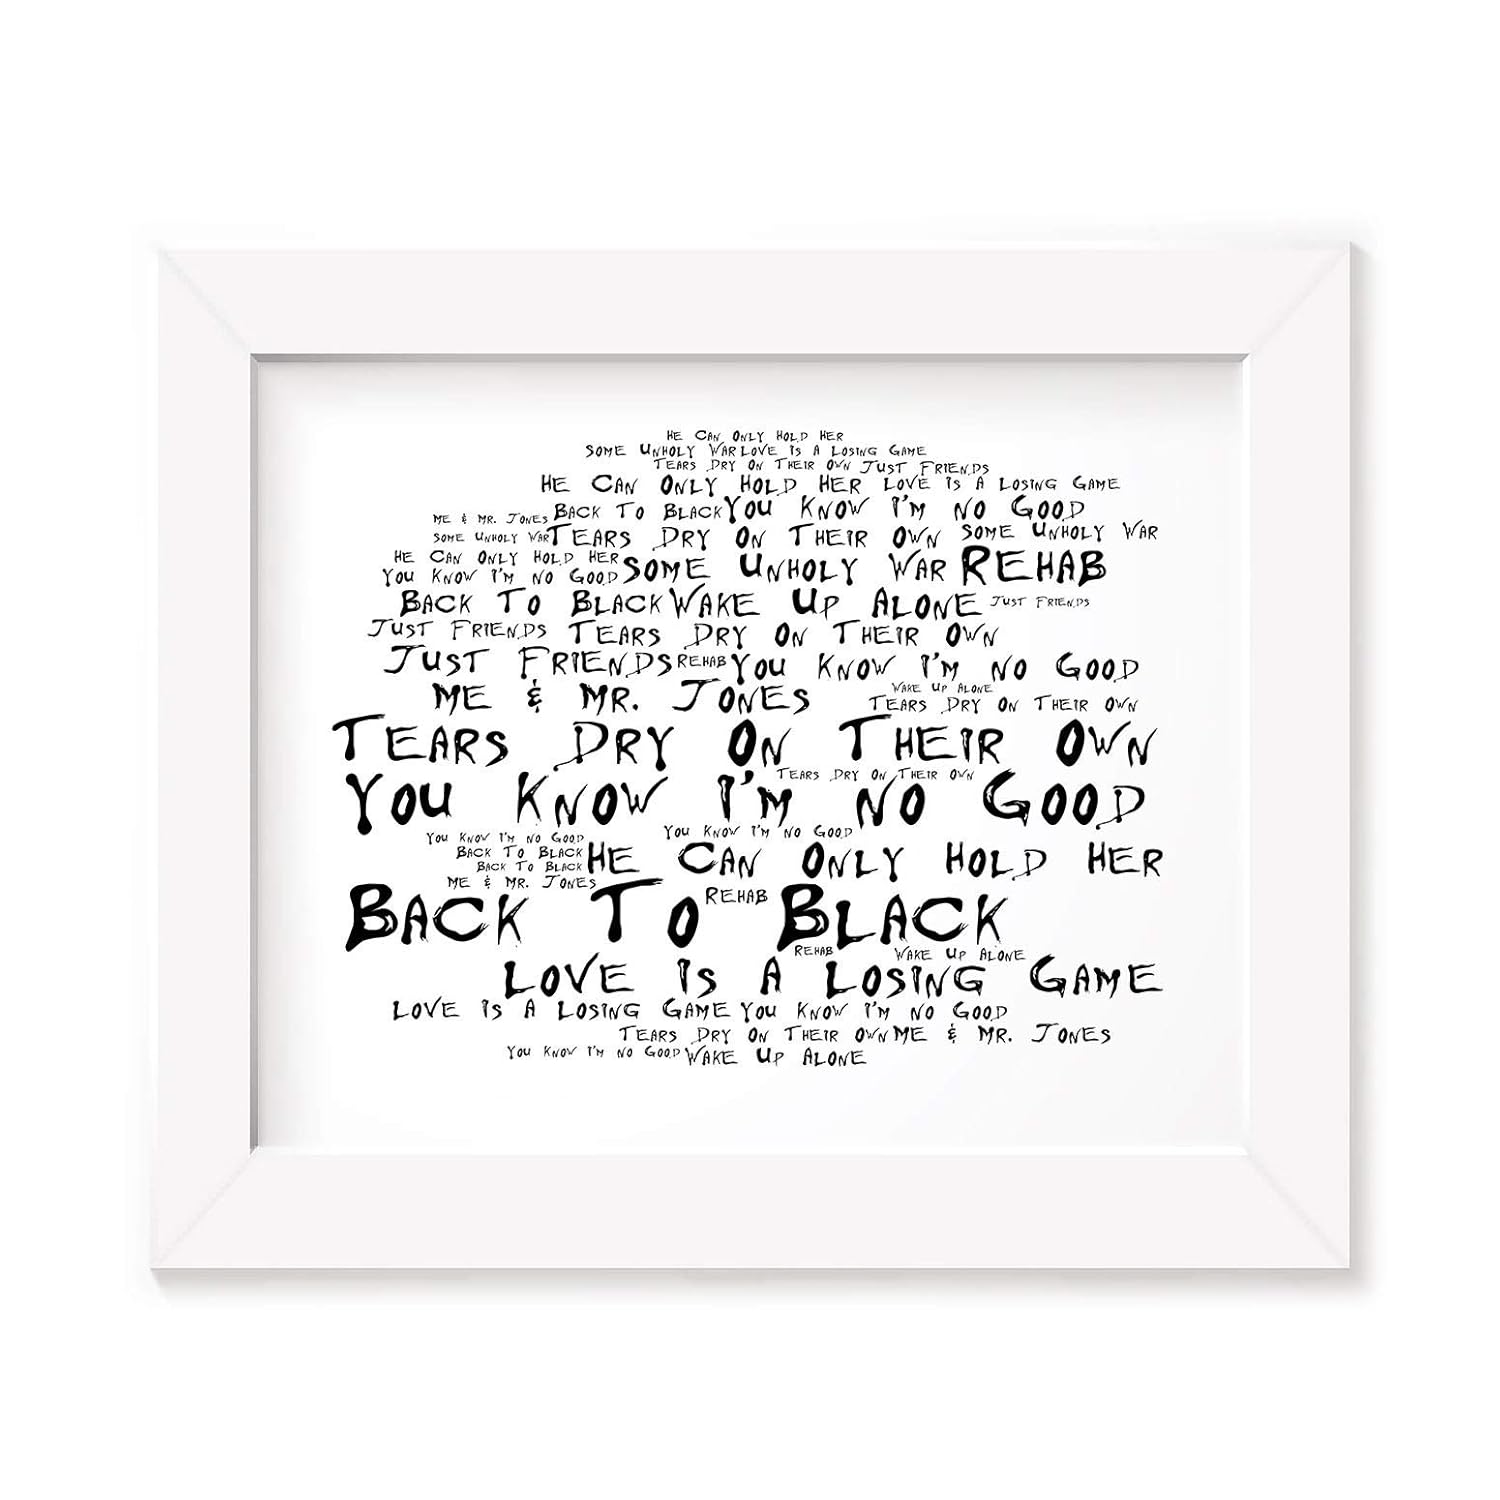 He Can Only Hold Her
Some Unholy War Love Is A Losing Game
Tears Dry On Their Own Just Friends
He Can Only Hold Her Love Is A Losing Game
Me & Mr. Jones Back To Black You Know I'm No Good
Some Unholy War Tears Dry On Their Own Some Unholy War
He Can Only Hold Her
You Know I'm No Good Some Unholy War Rehab
Back To Black Wake Up Alone Just Friends
Just Friends Tears Dry On Their Own
Just Friends Rehab You Know I'm No Good
Me & Mr. Jones Wake Up Alone
Tears Dry On Their Own
Tears Dry On Their Own
Tears Dry On Their Own
You Know I'm No Good
You Know I'm No Good You Know I'm No Good
Back To Black He Can Only Hold Her
Back To Black
Me & Mr. Jones
Back To Black Rehab
Rehab Wake Up Alone
Love Is A Losing Game
Love Is A Losing Game You Know I'm No Good
Tears Dry On Their Own Me & Mr. Jones
You Know I'm No Good Wake Up Alone